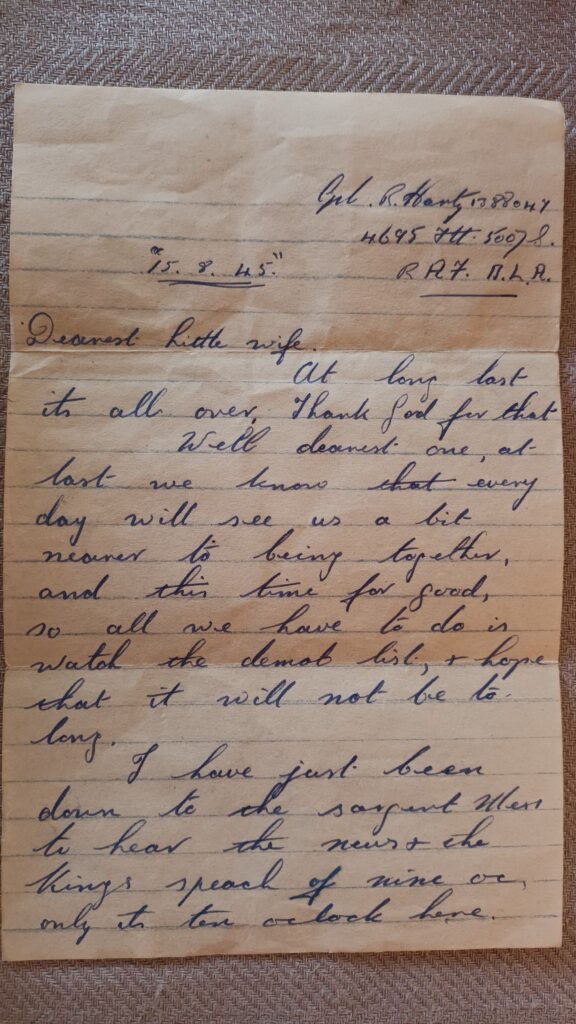 Cpl. R. Hartz 1388047
4695 Flt. 5007 S.
"15. 8. 45." R A F. B.L.A.
Dearest little wife.
At long last
its all over, Thank God for that
Well dearest one, at
last we know that every
day will see us a bit
nearer to being together,
and this time for good,
so all we have to do is
watch the demob list, + hope
that it will not be to
long.
I have just been
down to the sargent Mess
to hear the news + the
Kings speach of nine oc,
only its ten oclock here.